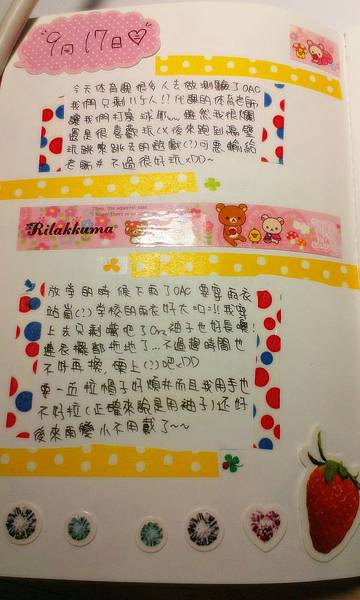 9月17日♡
今天体育課很多人去做測驗了OAC
我們只剩11.5人!!代課的体育老師
讓我們打桌球耶~~ 雖然我很爛
還是很喜歡玩(X後來跑到隔壁
玩跳來跳去的遊戲(?)可惡輸給
老師# 不過很好玩XDD~
Rilakkuma
放學的時候下雨了OAC 要穿雨衣
站崗(?)學校的雨衣好大呦=!!我穿
上去只剩嘴吧了Orz 袖子也好長喔!
連衣擺都拖地了...不過趕時間也
不好再換,便上(?)吧XDD
要一直拉帽子好煩,而且我用手也
不好拉(正確來說是用袖子)还好
後來雨變小不用戴了~~